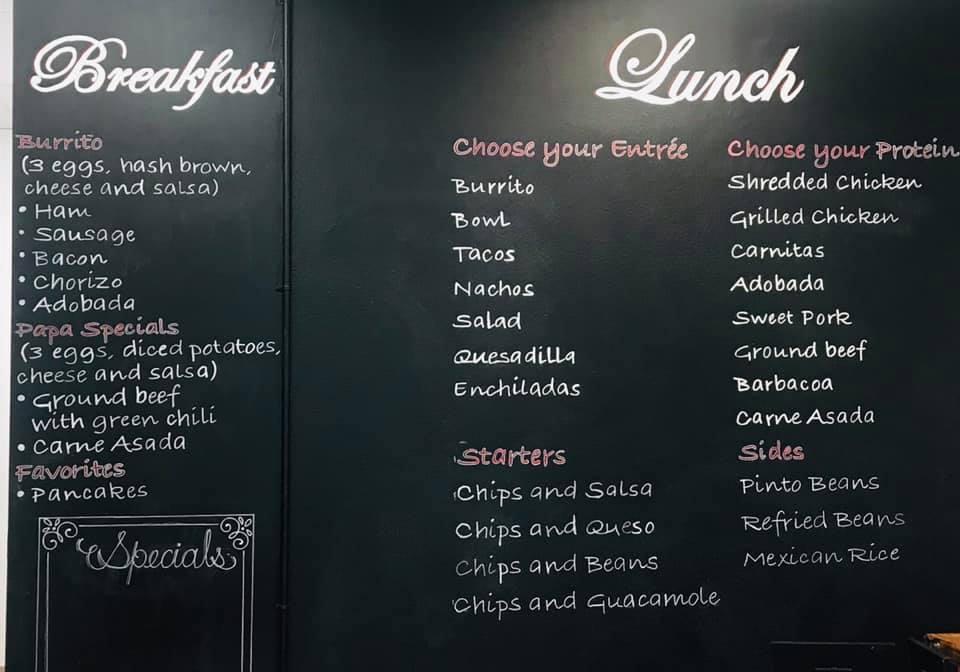 Breakfast
Burrito
(3 eggs, hash brown,
cheese and salsa)
• Ham
• Sausage
• Bacon
• Chorizo
• Adobada
Papa Specials
(3 eggs, diced potatoes,
cheese and salsa)
• Ground beef
with green chili
• Carne Asada
Favorites
• Pancakes
Specials
Lunch
Choose your Entrée
Burrito
Bowl
Tacos
Nachos
Salad
Quesadilla
Enchiladas
Starters
Chips and Salsa
Chips and Queso
Chips and Beans
Chips and Guacamole
Choose your Protein
Shredded Chicken
Grilled Chicken
Carnitas
Adobada
Sweet Pork
Ground beef
Barbacoa
Carne Asada
Sides
Pinto Beans
Refried Beans
Mexican Rice